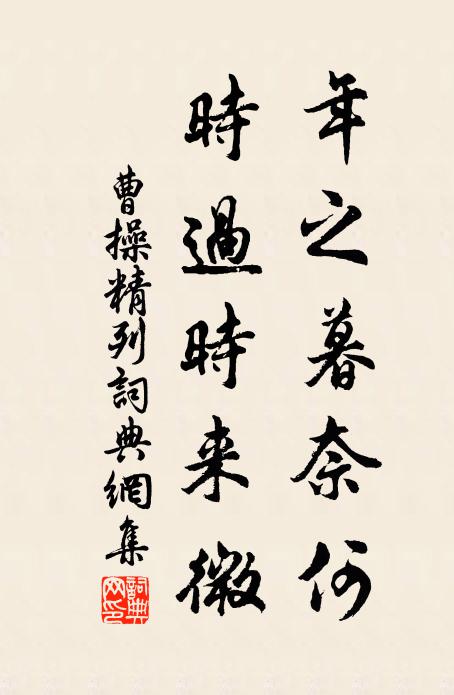 年之暮奈何
時過時来微
曹操精列詞典網集
詞典網印